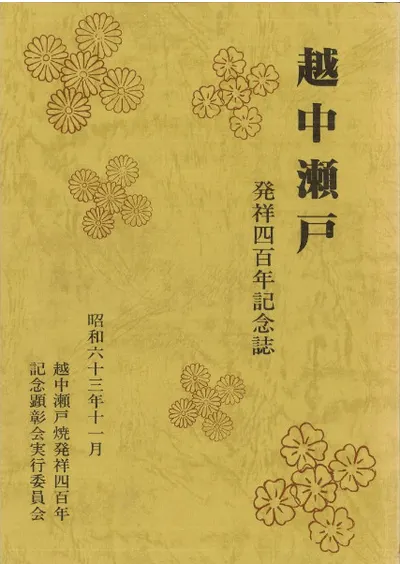 越中瀬戸
発祥四百年記念誌
昭和六十三年十一月
越中瀬戸焼発祥四百年
記念顕彰会実行委員会